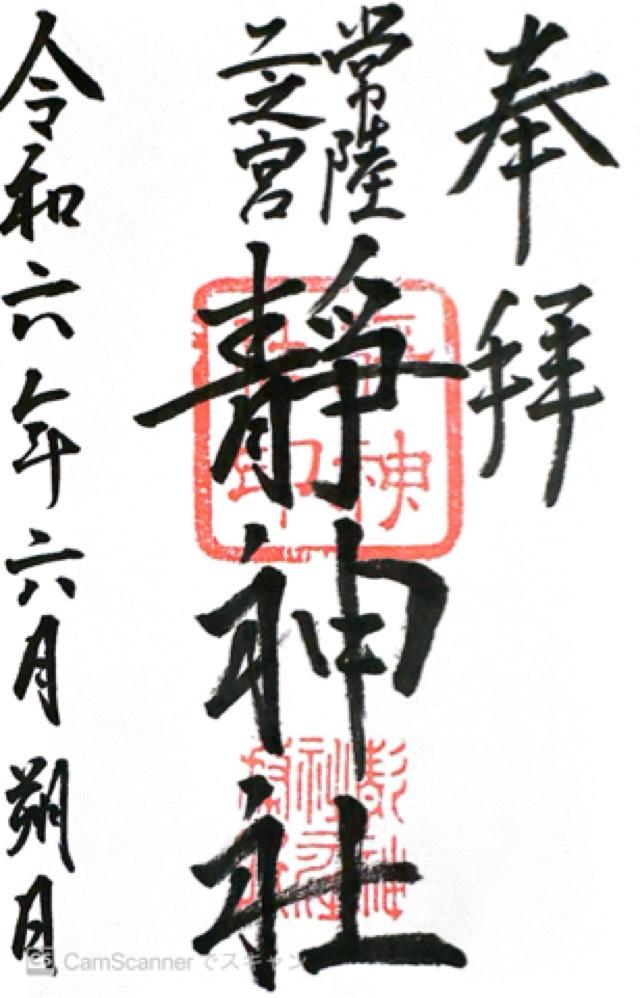 奉拝
常陸
二之宮
靜神社
令和六年六月朔日
CamScanner でスキャン